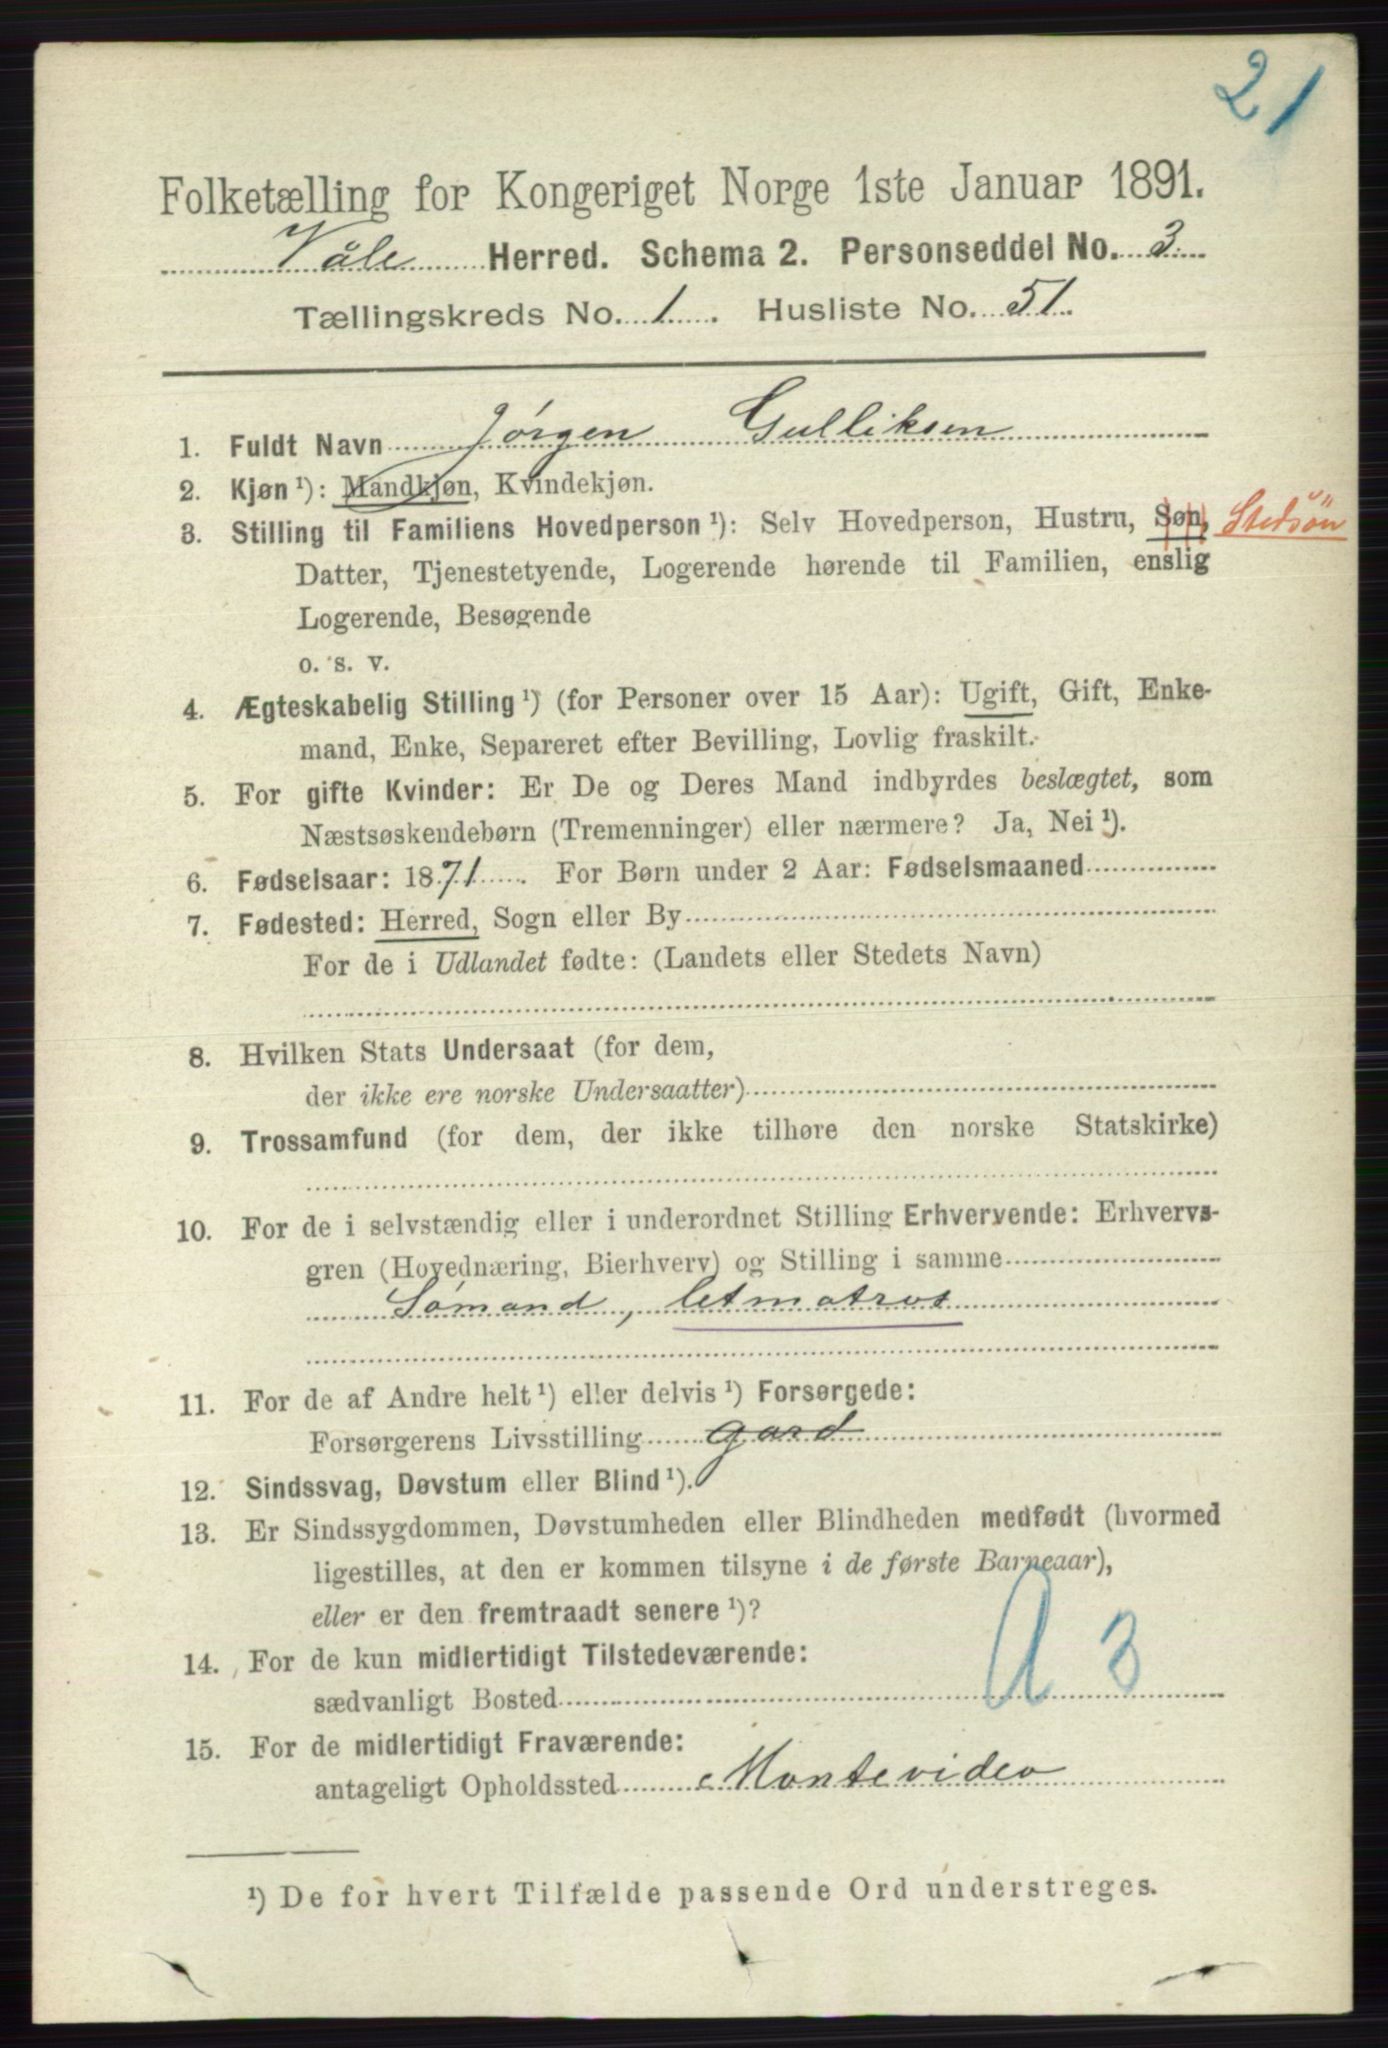 21
Folketælling for Kongeriget Norge 1ste Januar 1891.
Våle Herred. Schema 2. Personseddel No. 3
Tællingskreds No. 1. Husliste No. 51.
1. Fuldt Navn Jørgen Gulliksen
2. Kjøn ¹): Mandkjøn, Kvindekjøn.
3. Stilling til Familiens Hovedperson ¹): Selv Hovedperson, Hustru, Søn, Stedsön
Datter, Tjenestetyende, Logerende hørende til Familien, enslig
Logerende, Besøgende
o. s. v.
4. Ægteskabelig Stilling ¹) (for Personer over 15 Aar): Ugift, Gift, Enke-
mand, Enke, Separeret efter Bevilling, Lovlig fraskilt.
5. For gifte Kvinder: Er De og Deres Mand indbyrdes beslægtet, som
Næstsøskendebørn (Tremenninger) eller nærmere? Ja, Nei ¹).
6. Fødselsaar: 1871. For Børn under 2 Aar: Fødselsmaaned
7. Fødested: Herred, Sogn eller By
For de i Udlandet fødte: (Landets eller Stedets Navn)
8. Hvilken Stats Undersaat (for dem,
der ikke ere norske Undersaatter)
9. Trossamfund (for dem, der ikke tilhøre den norske Statskirke)
10. For de i selvstændig eller i underordnet Stilling Erhvervende: Erhvervs-
gren (Hovednæring, Bierhverv) og Stilling i samme
Sømand, letmatros
11. For de af Andre helt ¹) eller delvis ¹) Forsørgede:
Forsørgerens Livsstilling gard
12. Sindssvag, Døvstum eller Blind ¹).
13. Er Sindssygdommen, Døvstumheden eller Blindheden medfødt (hvormed
ligestilles, at den er kommen tilsyne i de første Barneaar),
eller er den fremtraadt senere ¹)?
14. For de kun midlertidigt Tilstedeværende:
sædvanligt Bosted
a 3
15. For de midlertidigt Fraværende:
antageligt Opholdssted Montevideo
¹) De for hvert Tilfælde passende Ord understreges.